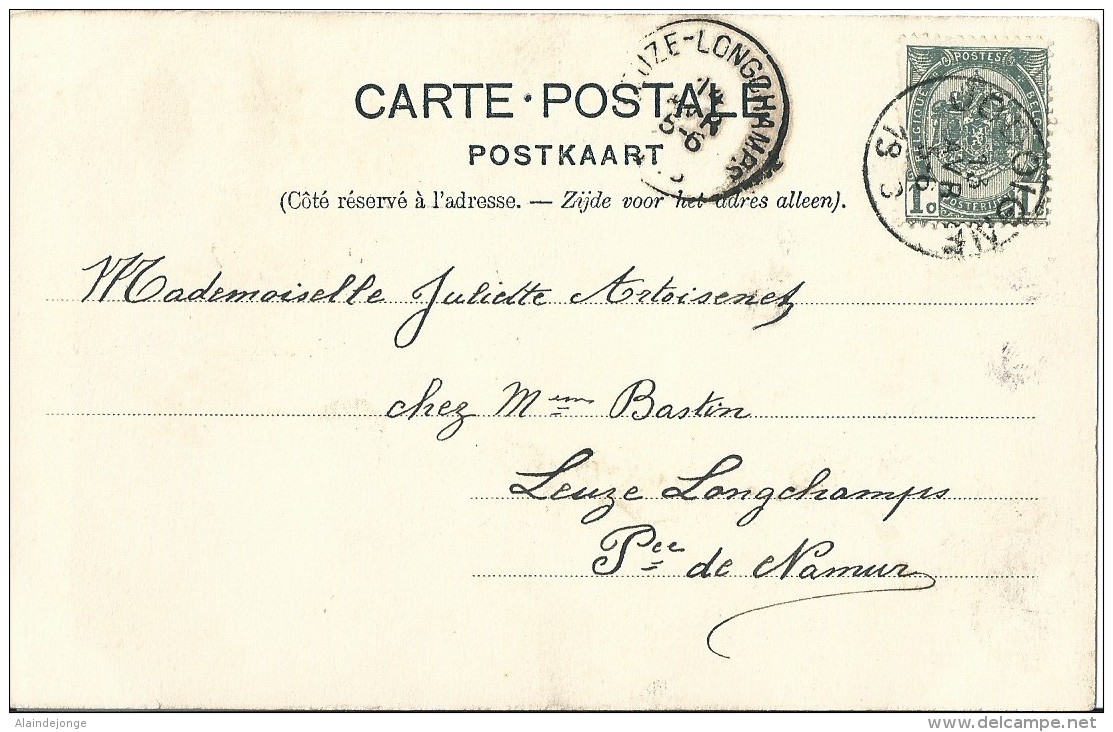 CARTE·POSTALE
POSTKAART
(Côté réservé à l'adresse. — Zijde voor het adres alleen).
LEUZE-LONGCHAMPS
14
AVR
5-6
POSTES
BELGIQUE
BELGIE
POSTERIJEN
1c 1c
AVR
Mademoiselle Juliette Artoisenet
chez Mme Bastin
Leuze Longchamps
Pce de Namur
Alaindejonge
www.delcampe.net